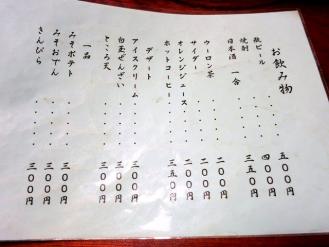 お飲み物
瓶ビール・・・・五〇〇円
焼酎・・・・四〇〇円
日本酒 一合・・・・三五〇円
ウーロン茶・・・・二〇〇円
サイダー・・・・二〇〇円
オレンジジュース・・・・二〇〇円
ホットコーヒー・・・・三五〇円
デザート
アイスクリーム・・・・三〇〇円
白玉ぜんざい・・・・三〇〇円
ところ天・・・・三〇〇円
一品
みそポテト・・・・三〇〇円
みそおでん・・・・三〇〇円
きんぴら・・・・三〇〇円